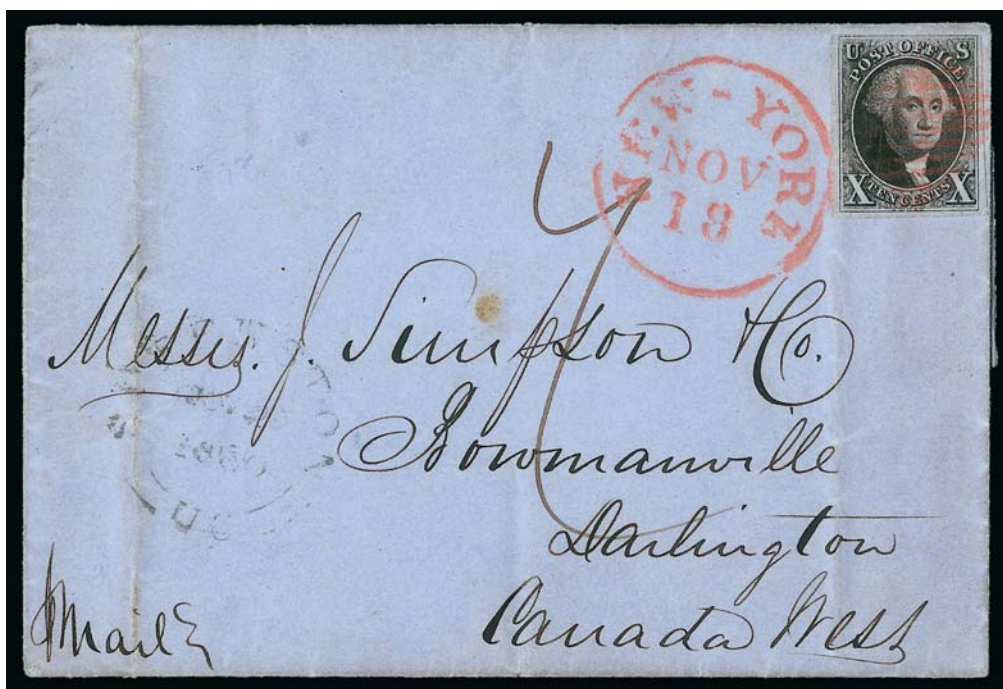 U S
POST OFFICE
X TEN CENTS X
NEW-YORK
NOV
18
Messrs. J. Simpson & Co.
Bowmanville
Darlington
Canada West
Mail